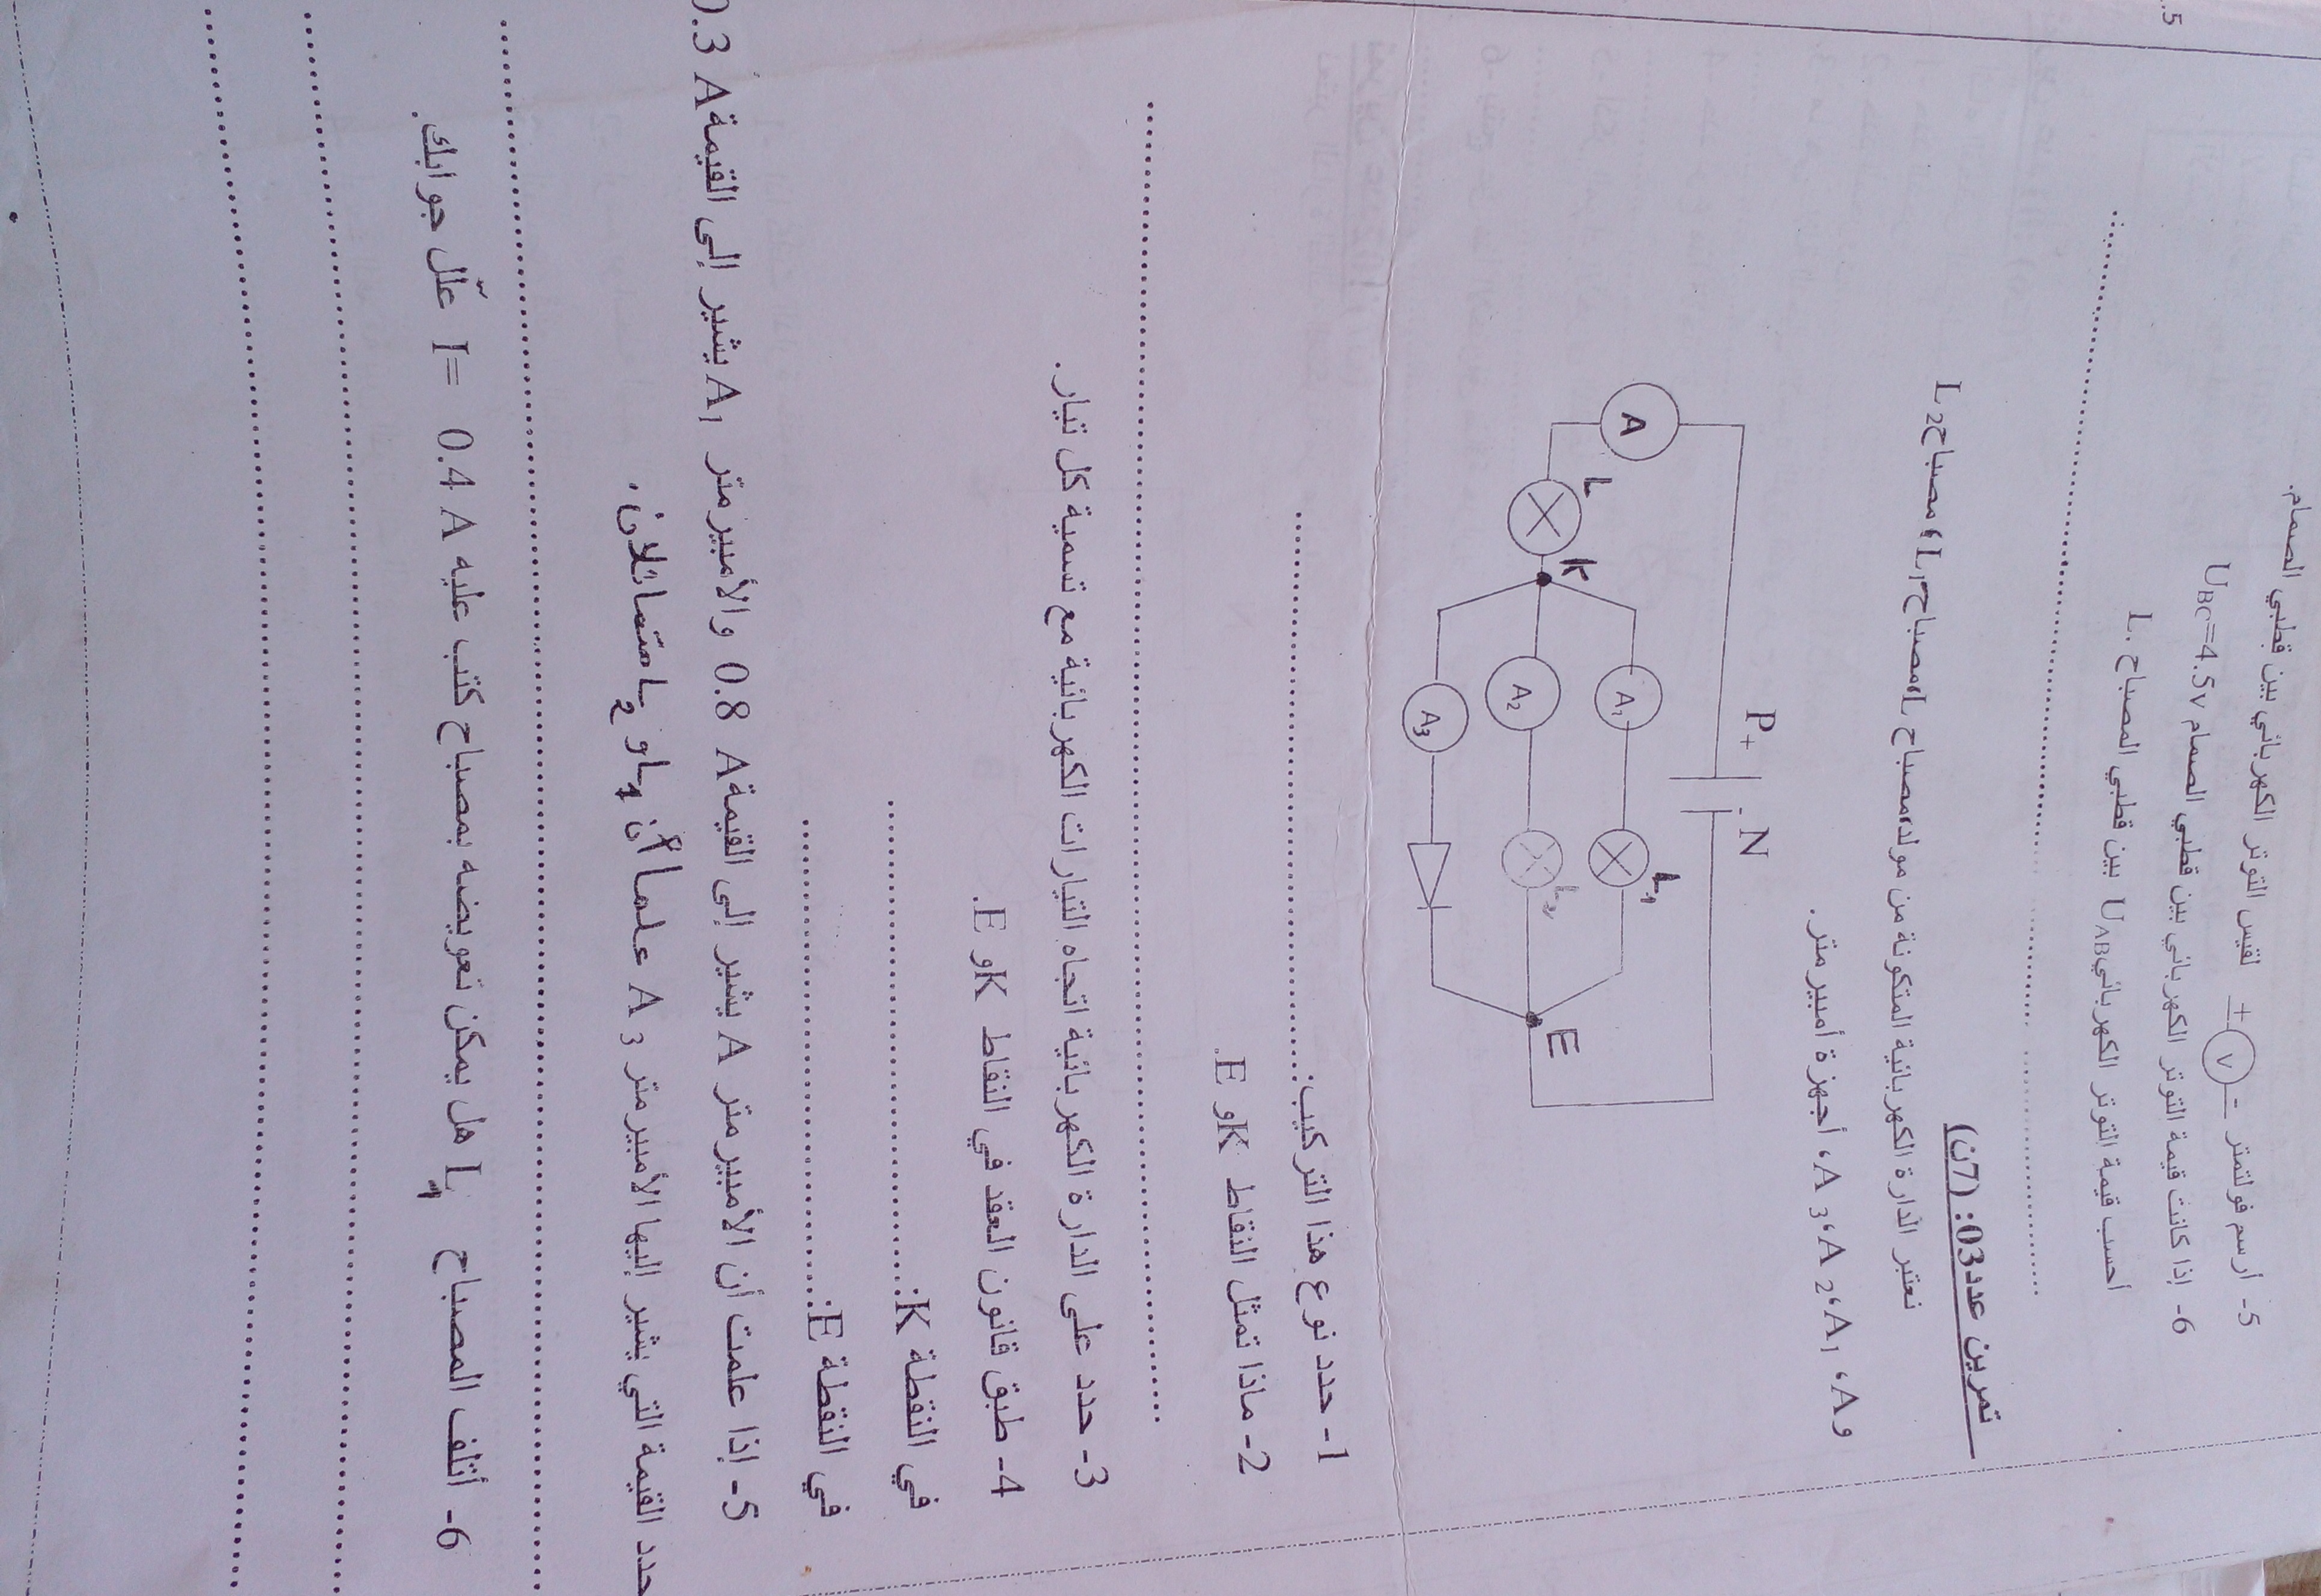 5.
الصمام.
5- أرسم فولتمتر + V - لقيس التوتر الكهربائي بين قطبي الصمام
6- إذا كانت قيمة التوتر الكهربائي بين قطبي الصمام UBC=4.5v
أحسب قيمة التوتر الكهربائي UAB بين قطبي المصباح L.
تمرين عدد03: (7ن)
نعتبر الدارة الكهربائية المتكونة من مولد،مصباح L،مصباح L1،مصباح L2
و A، A1، A2، A3، أجهزة أمبيرمتر.
P + - N
A L K
A1 L1
A2 L2
A3
E
1- حدد نوع هذا التركيب:
2- ماذا تمثل النقاط K و E.
3- حدد على الدارة الكهربائية اتجاه التيارات الكهربائية مع تسمية كل تيار.
4- طبق قانون العقد في النقاط K و E.
في النقطة K:
في النقطة E:
5- إذا علمت أن الأمبيرمتر A يشير إلى القيمة 0.8 A والأمبيرمتر A1 يشير إلى القيمة 0.3 A
حدد القيمة التي يشير إليها الأمبيرمتر A3 علما أن L1 و L2 متماثلان.
6- أتلف المصباح L1 هل يمكن تعويضه بمصباح كتب عليه I= 0.4 A علّل جوابك.